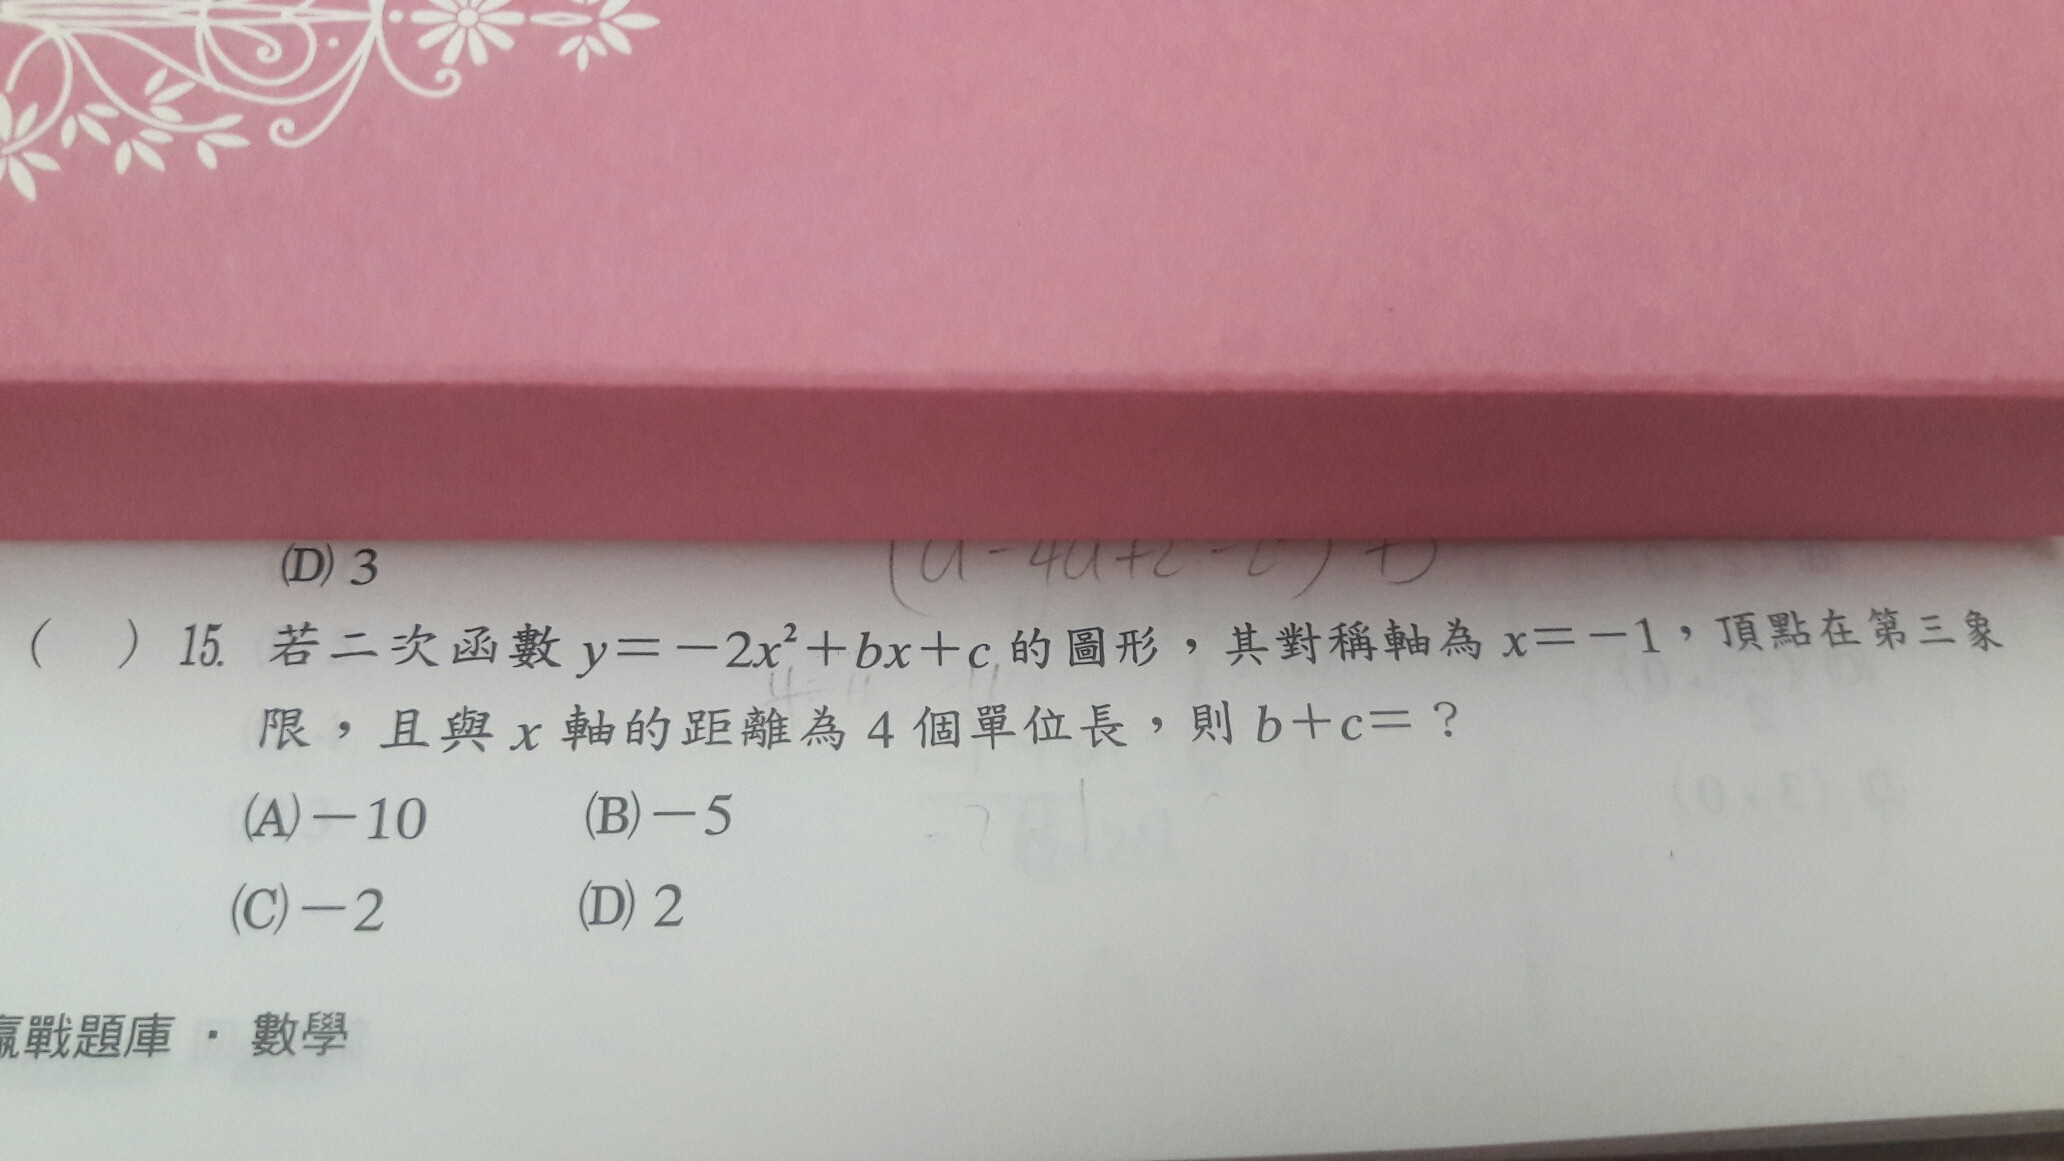 (D) 3
( ) 15. 若二次函數 y=-2x²+bx+c 的圖形，其對稱軸為 x=-1，頂點在第三象
限，且與 x 軸的距離為 4 個單位長，則 b+c=？
(A)-10 (B)-5
(C)-2 (D) 2
贏戰題庫 · 數學